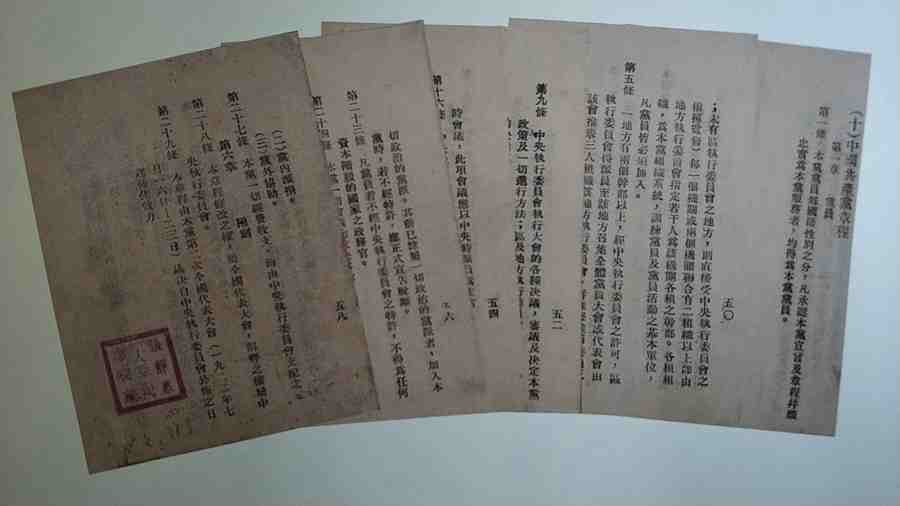 (十)中國共產黨章程
第一章 黨員
第一條 本黨黨員無國籍性別之分,凡承認本黨宣言及章程并願
忠實為本黨服務者,均得為本黨黨員。
五〇
;未有區執行委員會之地方,則直接受中央執行委員會之
指揮監督)每一個機關或兩個機關聯合有二組織以上即由
地方執行委員會指定若干人為該機關各組之幹部。各組組
織,為本黨組織系統,訓練黨員及黨員活動之基本單位,
凡黨員皆必須加入。
第五條 一地方有兩個幹部以上,經中央執行委員會之許可,區
執行委員會得派員至該地方召集全體黨員大會或代表會由
該會推舉三人組織該地方執行委員會,
五二
第九條 中央執行委員會執行大會的各種決議,審議及決定本黨
政策及一切進行方法;區及地方執行
五四
時會議,此項會議應以中央特派員
第十六條
五六
切政治的黨派。其前已隸屬一切政治的黨派者,加入本
黨時,若不經特許,應正式宣告脫離。
第二十三條 凡黨員若不經中央執行委員會之特許,不得為任何
資本階級的國家之政務官。
第二十四條 本黨一切會
五八
(二)黨內派捐。
(三)黨外協助。
第二十七條 本黨一切經費收支,均由中央執行委員會支配之。
第六章 附則
第二十八條 本章程修改之權,屬全國代表大會,解釋之權屬中
央執行委員會。
第二十九條 本章程由本黨第二次全國代表大會(一九二二年七
月十六日—二三日)議決自中央執行委員會公佈之日
起發生效力。
張靜泉